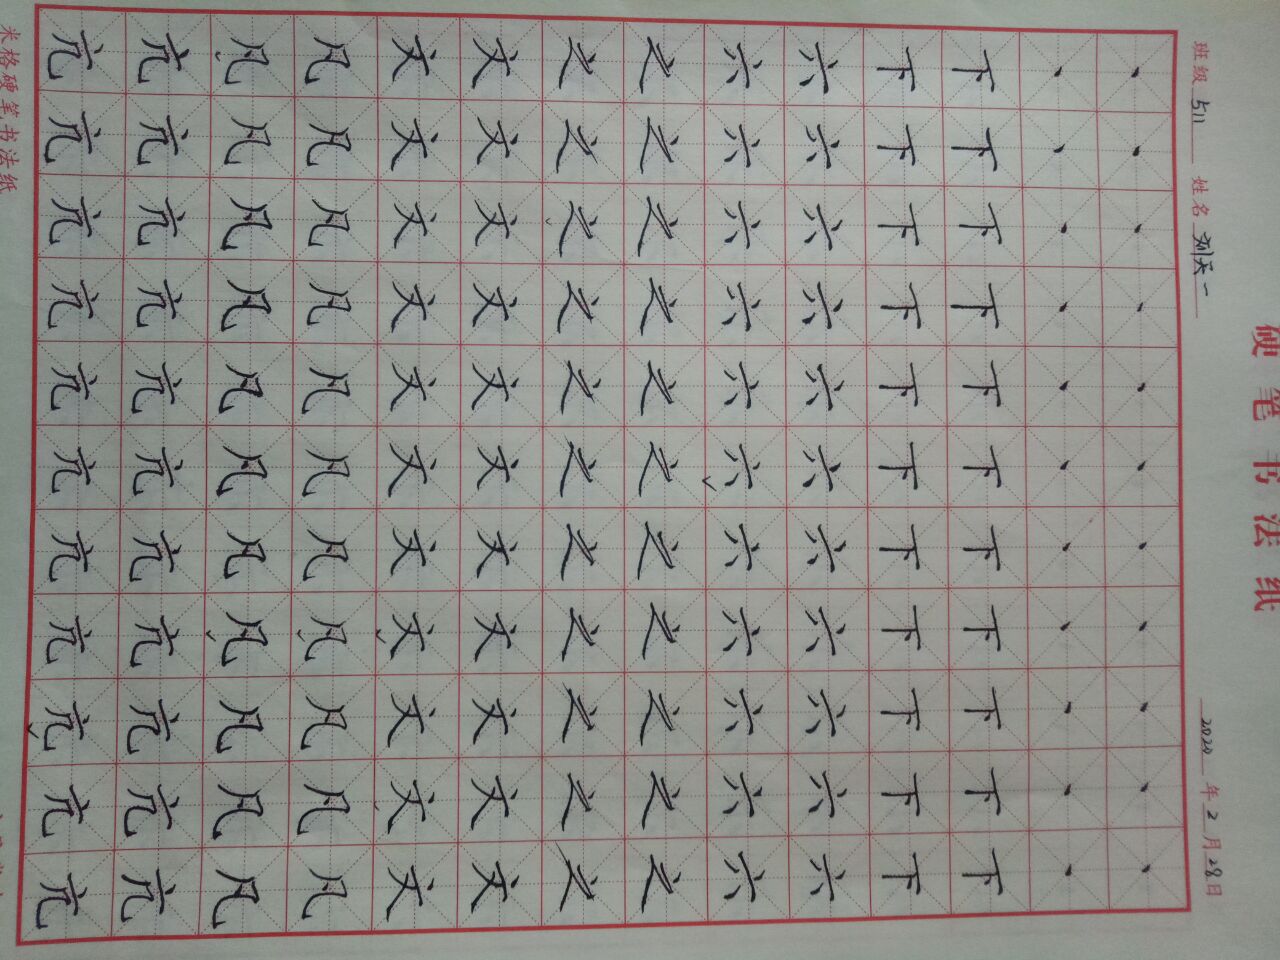 硬笔书法纸
班级 511 姓名 刘天一 2020年2月28日
丶丶丶丶丶丶丶丶丶丶丶
丶丶丶丶丶丶丶丶丶丶丶
下下下下下下下下下下下
下下下下下下下下下下下
六六六六六六六六六六六
六六六六六六六六六六六
之之之之之之之之之之之
之之之之之之之之之之之
文文文文文文文文文文文
文文文文文文文文文文文
凡凡凡凡凡凡凡凡凡凡凡
凡凡凡凡凡凡凡凡凡凡凡
亢亢亢亢亢亢亢亢亢亢亢
亢亢亢亢亢亢亢亢亢亢亢
米格硬笔书法纸